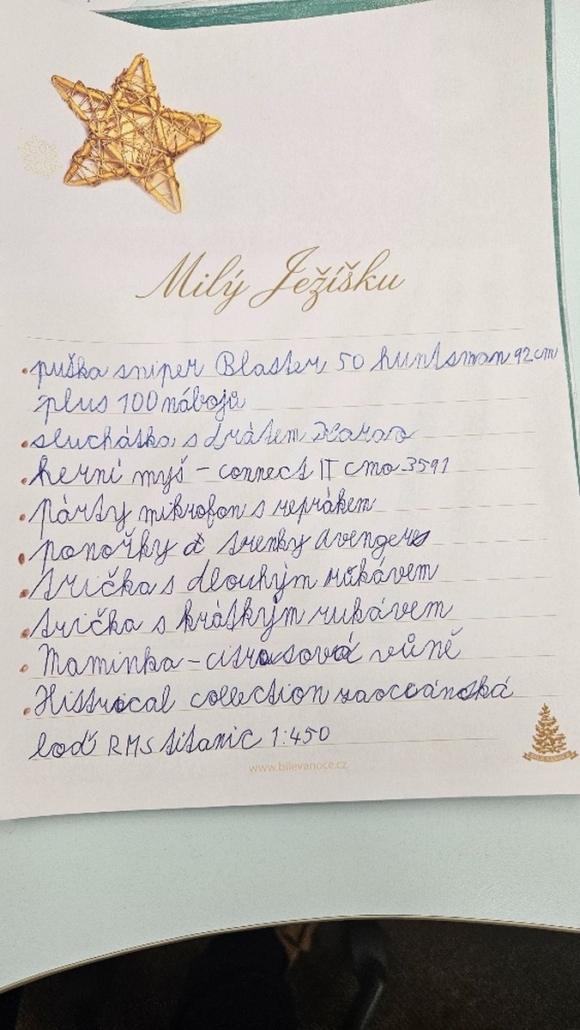 Milý Ježíšku
• puška sniper Blaster 50 huntsman 92cm
plus 100 nábojů
• sluchátka s drátem
• herní myš - connect IT cmo-3591
• párty mikrofon s reprákem
• ponožky a trenky avengers
• trička s dlouhým rukávem
• trička s krátkým rukávem
• Maminka - citrusová vůně
• Histrocal collection zaoceánská
loď RMS titanic 1:450
www.bilevanoce.cz